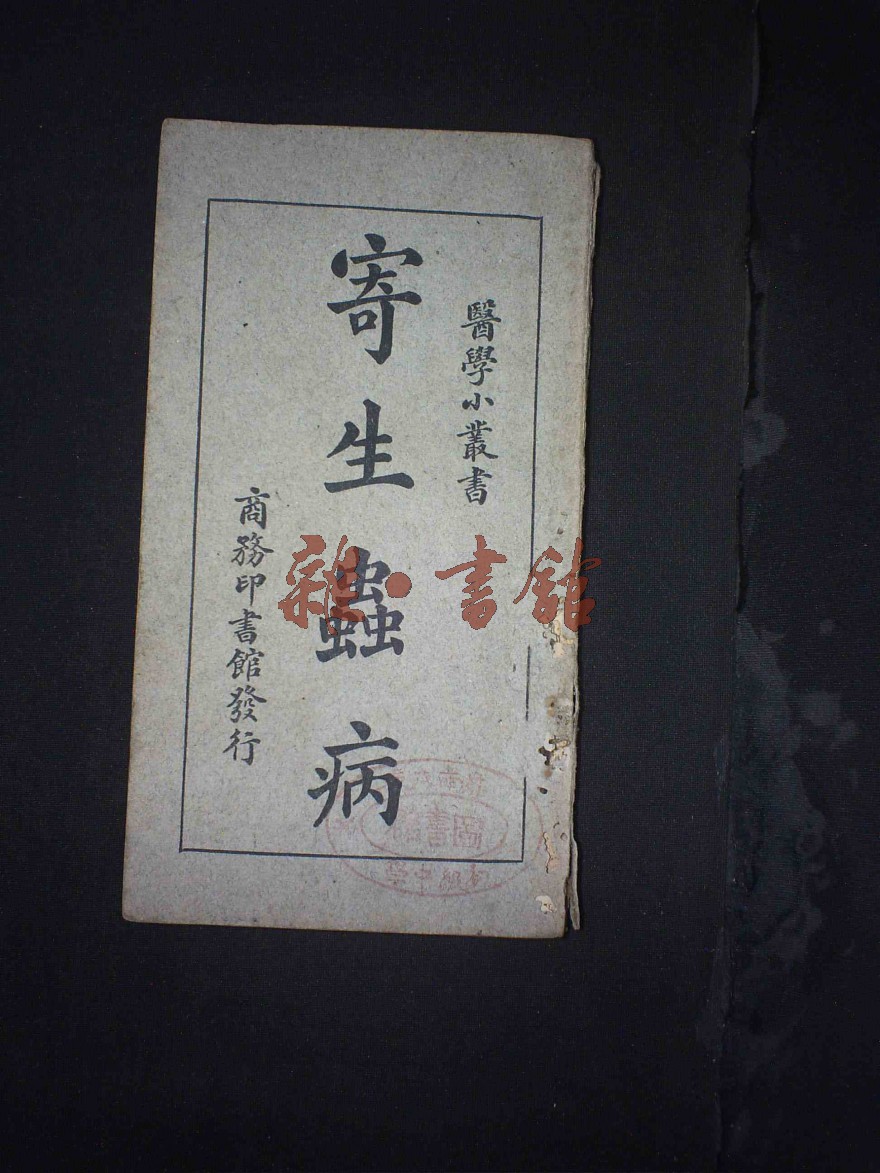 醫學小叢書
寄生蟲病
商務印書館發行
雜·書館
圖書館
級中學